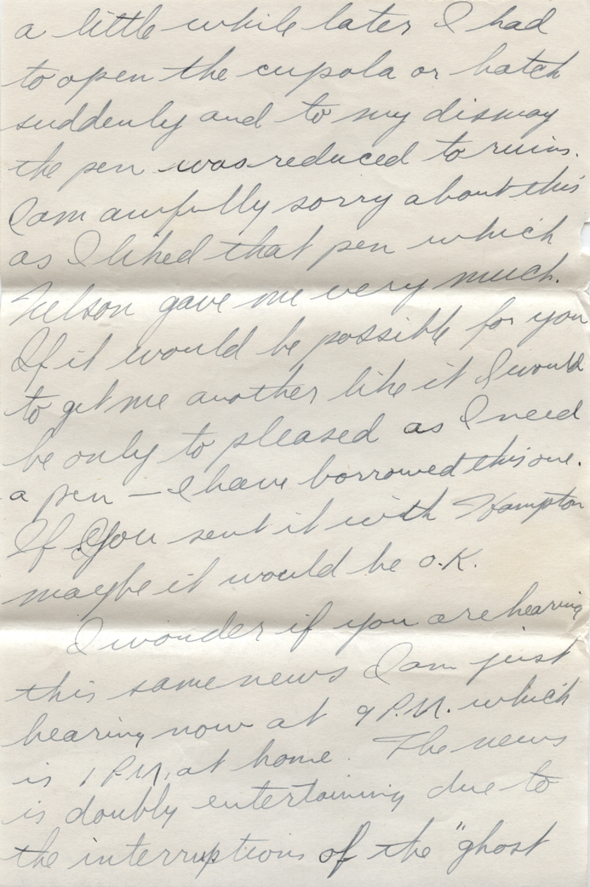 a little while later I had
to open the cupola or hatch
suddenly and to my dismay
the pen was reduced to ruins.
I am awfully sorry about this
as I liked that pen which
Nelson gave me very much.
If it would be possible for you
to get me another like it I would
be only to pleased as I need
a pen — I have borrowed this one.
If you sent it with Hampton
maybe it would be O.K.
I wonder if you are hearing
this same news I am just
hearing now at 9 P.M. which
is 1 P.M. at home. The news
is doubly entertaining due to
the interruptions of the "ghost